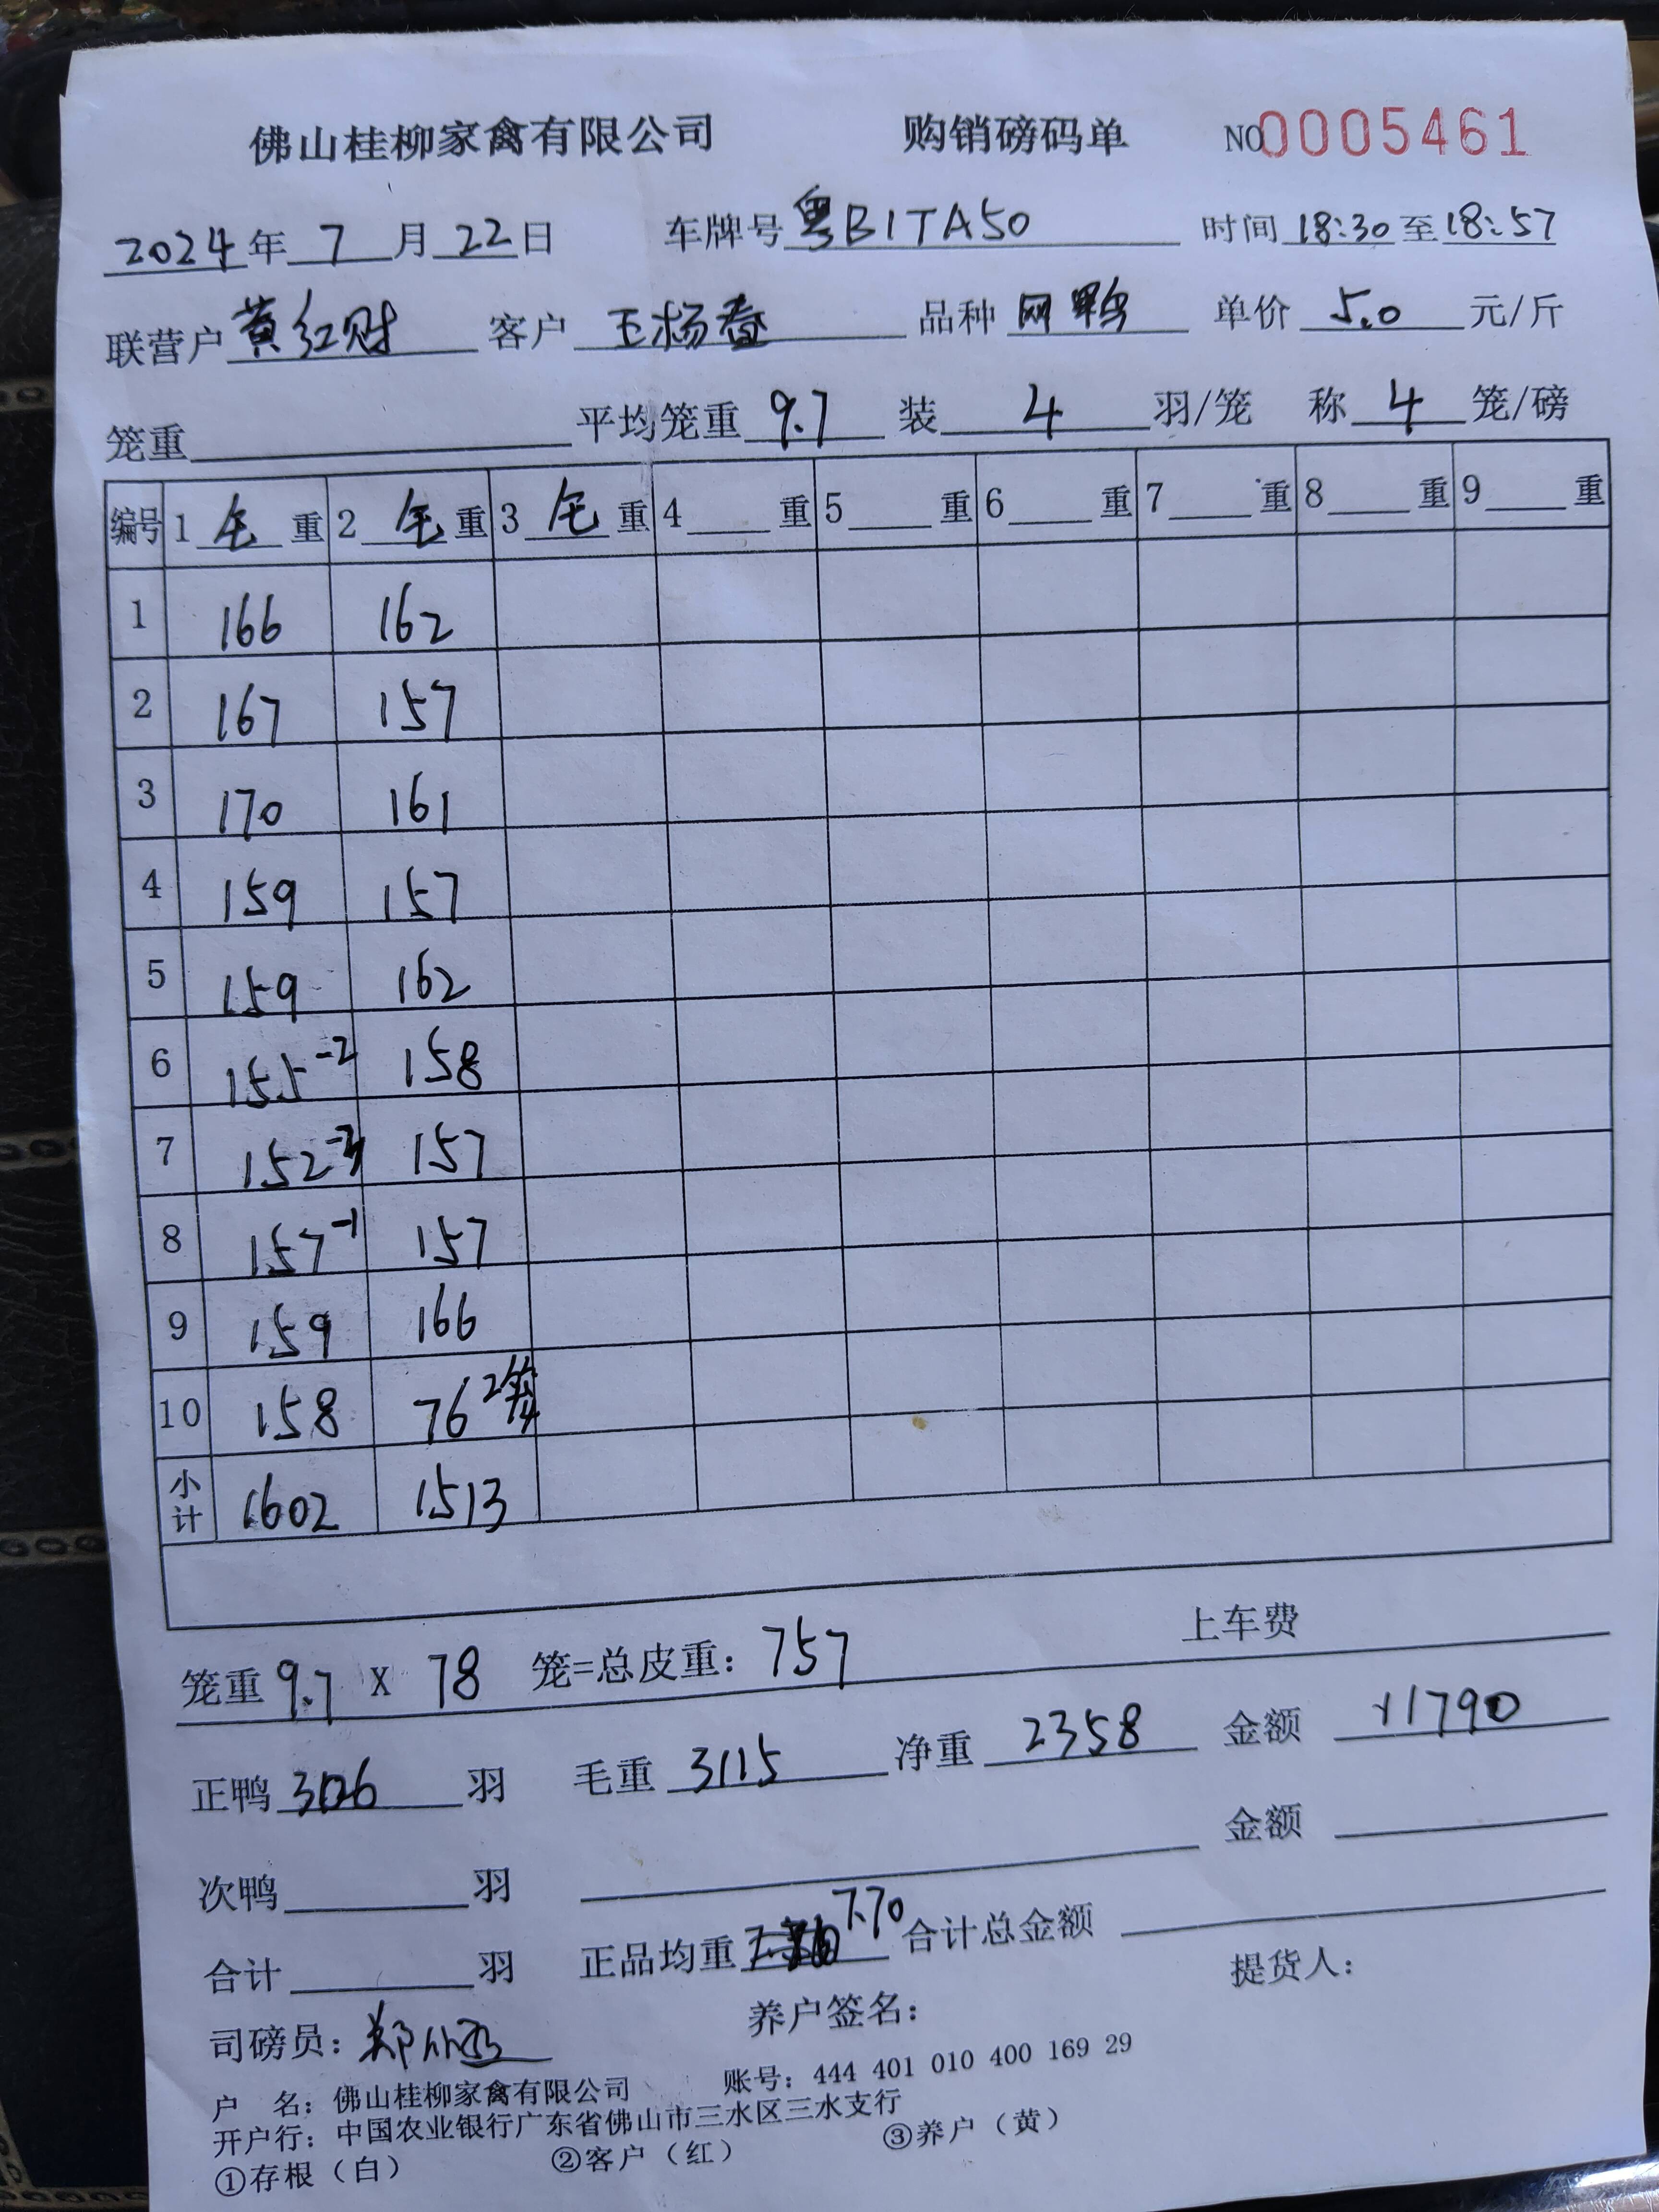 佛山桂柳家禽有限公司 购销磅码单 NO0005461
2024年7月22日 车牌号粤B1TA50 时间18:30至18:57
联营户黄红财 客户王杨春 品种网鸭 单价5.0元/斤
笼重 平均笼重9.7 装4羽/笼 称4笼/磅
编号 1毛重 2毛重 3毛重 4重 5重 6重 7重 8重 9重
1 166 162
2 167 157
3 170 161
4 159 157
5 159 162
6 155-2 158
7 152-3 157
8 157-1 157
9 159 166
10 158 76 2笼
小计 1602 1513
笼重9.7X78笼=总皮重:757 上车费
正鸭 羽 毛重3115 净重2358 金额 11790
次鸭 羽 金额
合计 羽 正品均重7.70 合计总金额
司磅员: 养户签名: 提货人:
户 名:佛山桂柳家禽有限公司 账号:444 401 010 400 169 29
开户行:中国农业银行广东省佛山市三水区三水支行
①存根(白) ②客户(红) ③养户(黄)